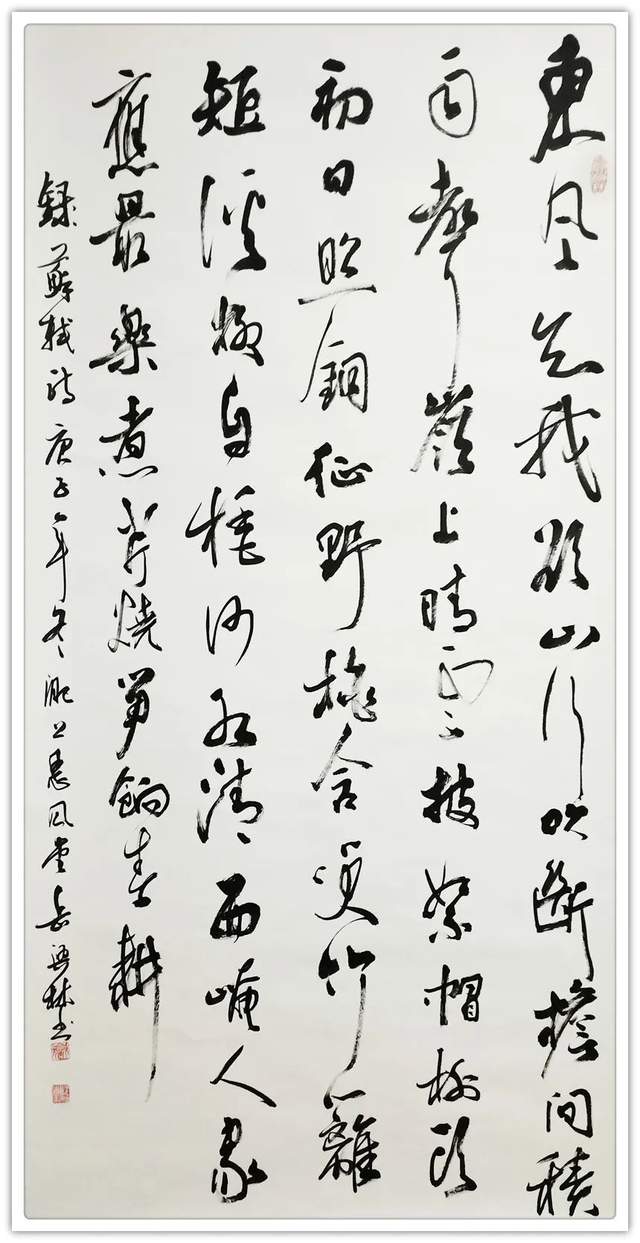 東風知我欲山行吹斷檐間積
雨聲嶺上晴雲披絮帽樹頭
初日照銅征野桃含笑竹籬
短溪柳自摇沙水清西崦人家
應最樂煮芹燒筍餉春耕
錄蘇軾詩庚子年冬淝上惠風堂岳林书